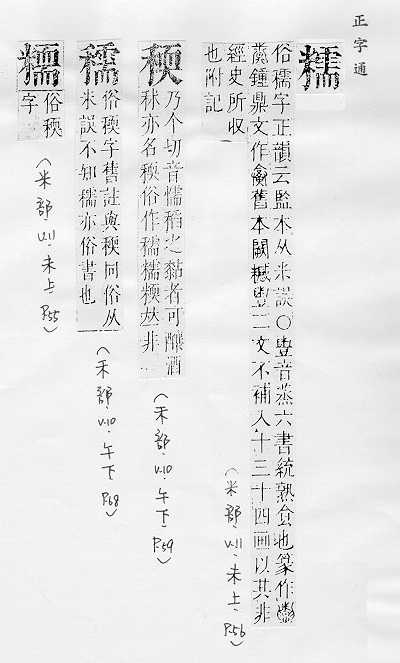 正字通
糯
俗稬字正韻云監本从米誤○豐音蒸六書統熟食也篆作
鐘鼎文作 舊本闕 二文不補入十三十四画以其非
經史所收
也附記
(米部.V.11.未上.P.56)
稬
乃个切音懦稻之黏者可釀酒
秫亦名稬俗作穤糯糥𠀤非
(禾部.V.10.午下.P.59)
穤
俗稬字舊註與稬同俗从
米誤不知穤亦俗書也
(禾部.V.10.午下.P.68)
糯
俗稬
字
(米部.V.11.未上.P.55)